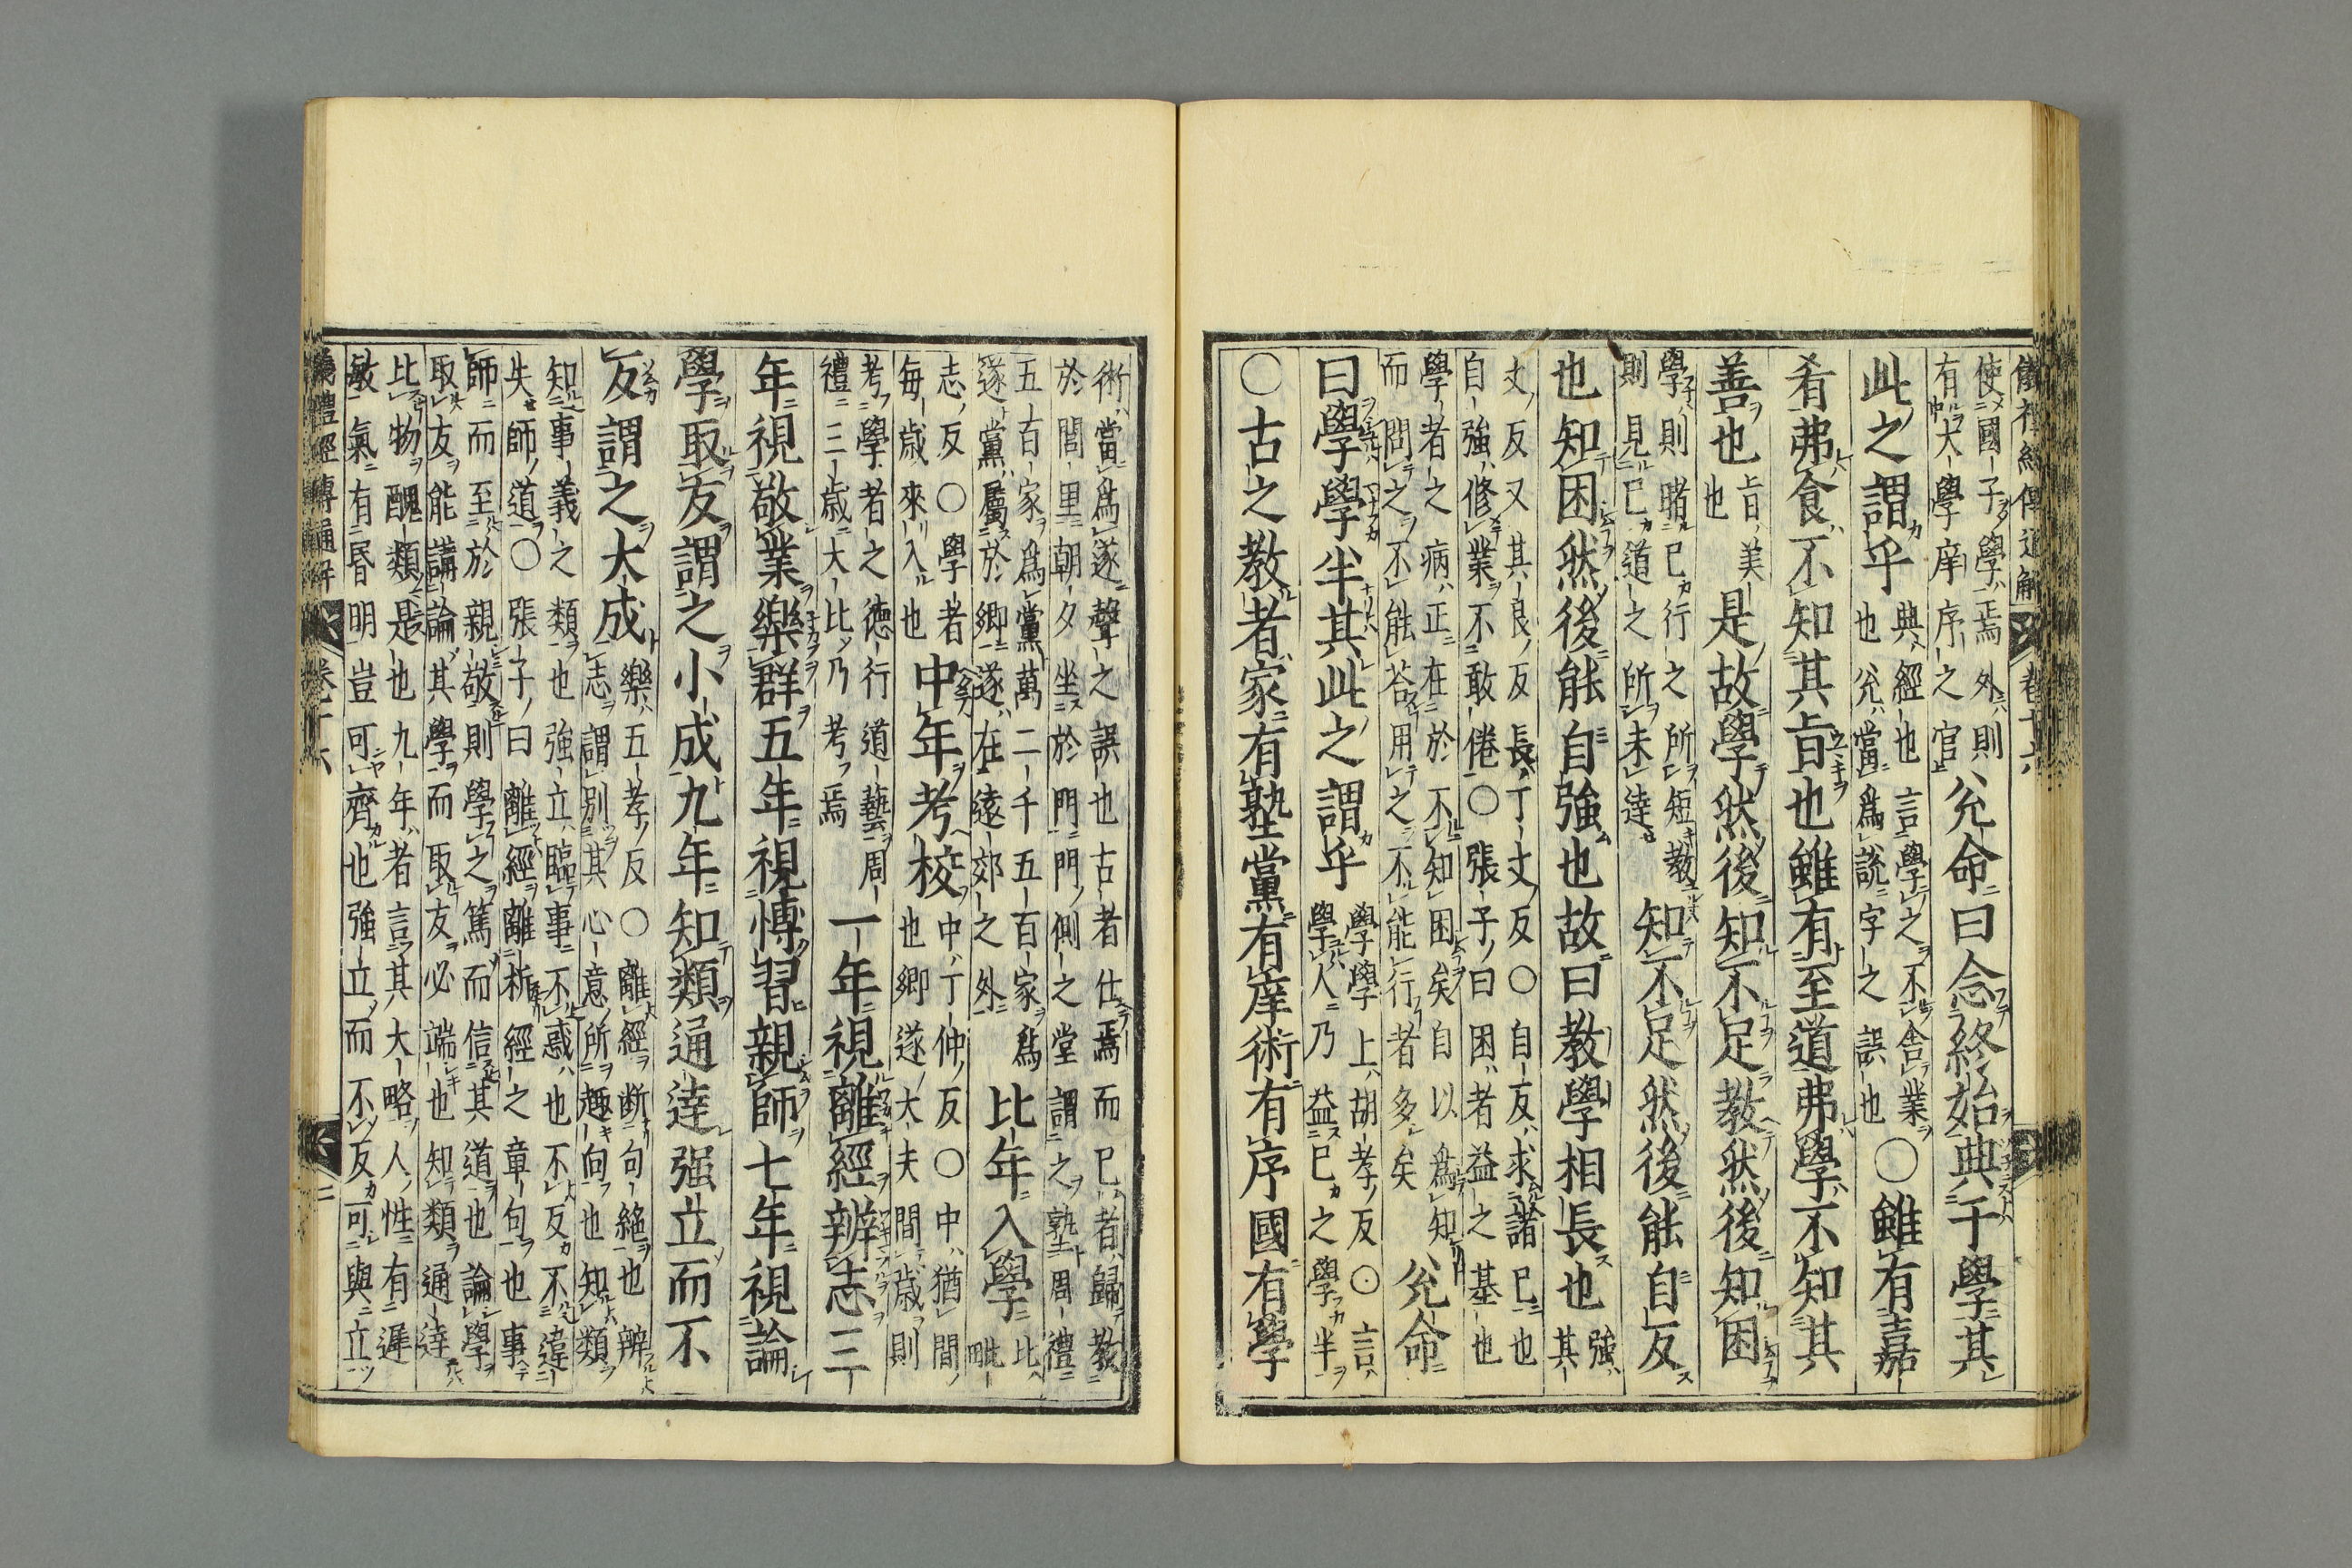 儀禮經傳通解 卷十六
使國子學焉外則有大學庠序之官兊命曰念終始典于學其
此之謂乎典經也言學之不舍業也兊當爲說字之誤也○雖有嘉
肴弗食不知其旨也雖有至道弗學不知其
善也旨美也是故學然後知不足教然後知困
學則睹己行之所短教則見己道之所未達知不足然後能自反
也知困然後能自強也故曰教學相長也強其
丈反又其良反長丁丈反○自反求諸己也
自強修業不敢倦○張子曰困者益之基也
學者之病正在於不知困矣自以爲知而問之不能荅用之不能行者多矣兊命
曰學學半其此之謂乎學學上胡孝反○言學人乃益己之學半
○古之教者家有塾黨有庠術有序國有學
術當爲遂聲之誤也古者仕焉而已者歸教
於閭里朝夕坐於門門側之堂謂之塾周禮
五百家爲黨萬二千五百家爲遂黨屬於鄉遂在遠郊之外比年入學比毗
志反○學者每歲來入也中年考校中丁仲反○中猶間也鄉遂大夫間歲則
考學者之德行道藝周禮三歲大比乃考焉一年視離經辨志三
年視敬業樂群五年視博習親師七年視論
學取友謂之小成九年知類通達强立而不
反謂之大成樂五孝反○離經斷句絕也辨志謂別其心意所趣向也知類
知事義之類也強立臨事不惑也不反不違
失師道○張子曰離經離析經之章句也事
師而至於親敬則學之篤而信其道也論學
取友能講論其學而取友必端也知類通達
比物醜類是也九年者言其大略人性有遲
敏氣有昏明豈可齊也強立而不反可與立
儀禮經傳通解 卷十六 二